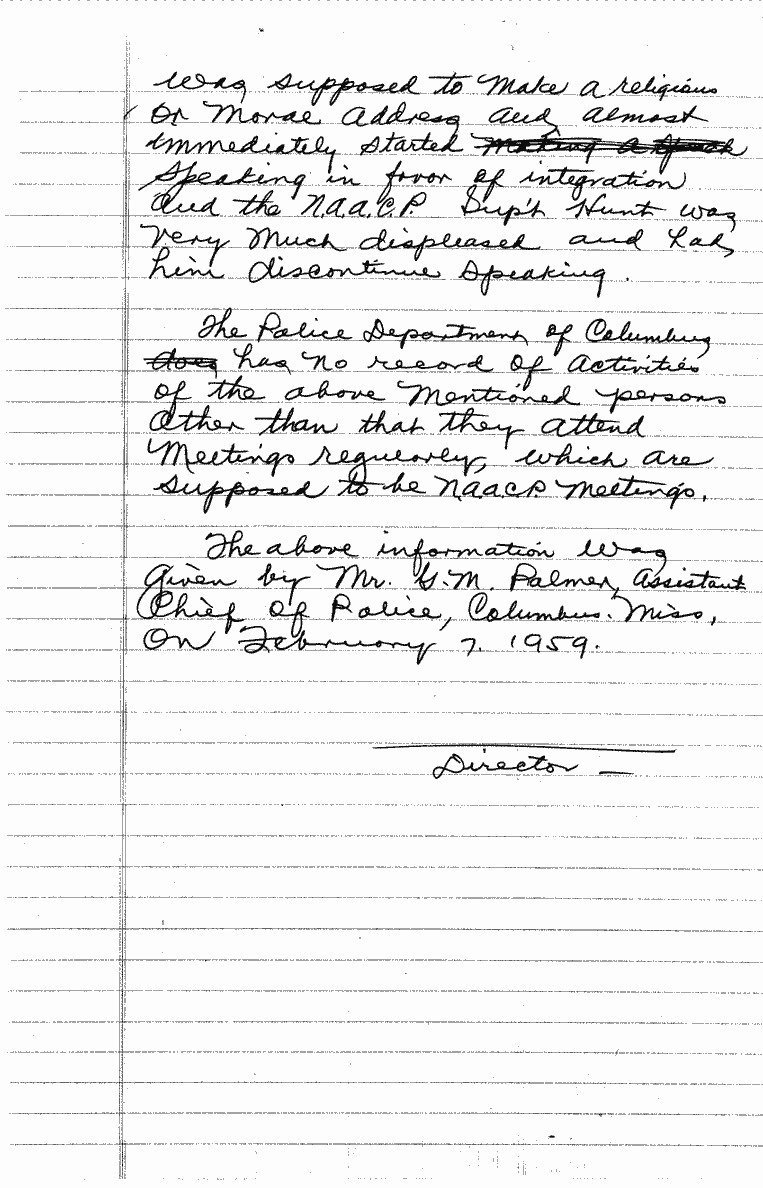 was supposed to make a religious
or moral address and almost
immediately started making a speech
speaking in favor of integration
and the N.A.A.C.P. Sup't Hunt was
very much displeased and had
him discontinue speaking.
The Police Department of Columbus
does has no record of activities
of the above mentioned persons
other than that they attend
meetings regularly, which are
supposed to be N.A.A.C.P. meetings.
The above information was
given by Mr. G.M. Palmer, Assistant
Chief of Police, Columbus. Miss,
on February 7. 1959.
Director